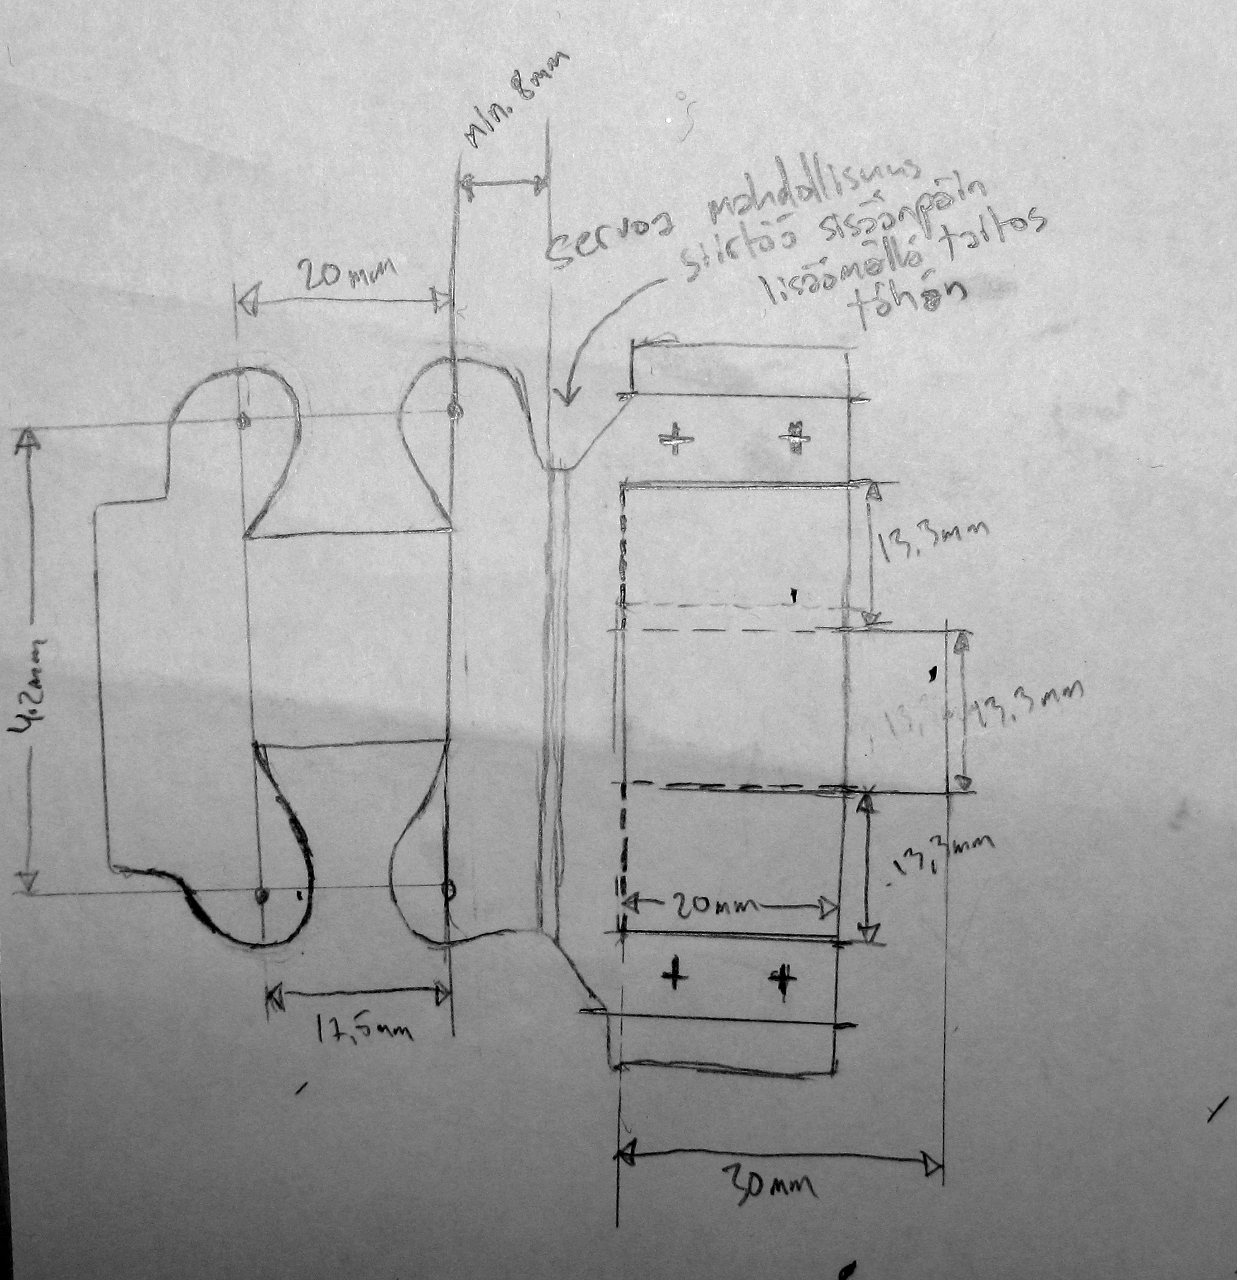 min. 8mm
servoa mahdollisuus
siirtää sisäänpäin
lisäämällä taitos
tähän
20mm
13,3mm
42mm
13,3mm
13,3mm
20mm
17,5mm
30mm